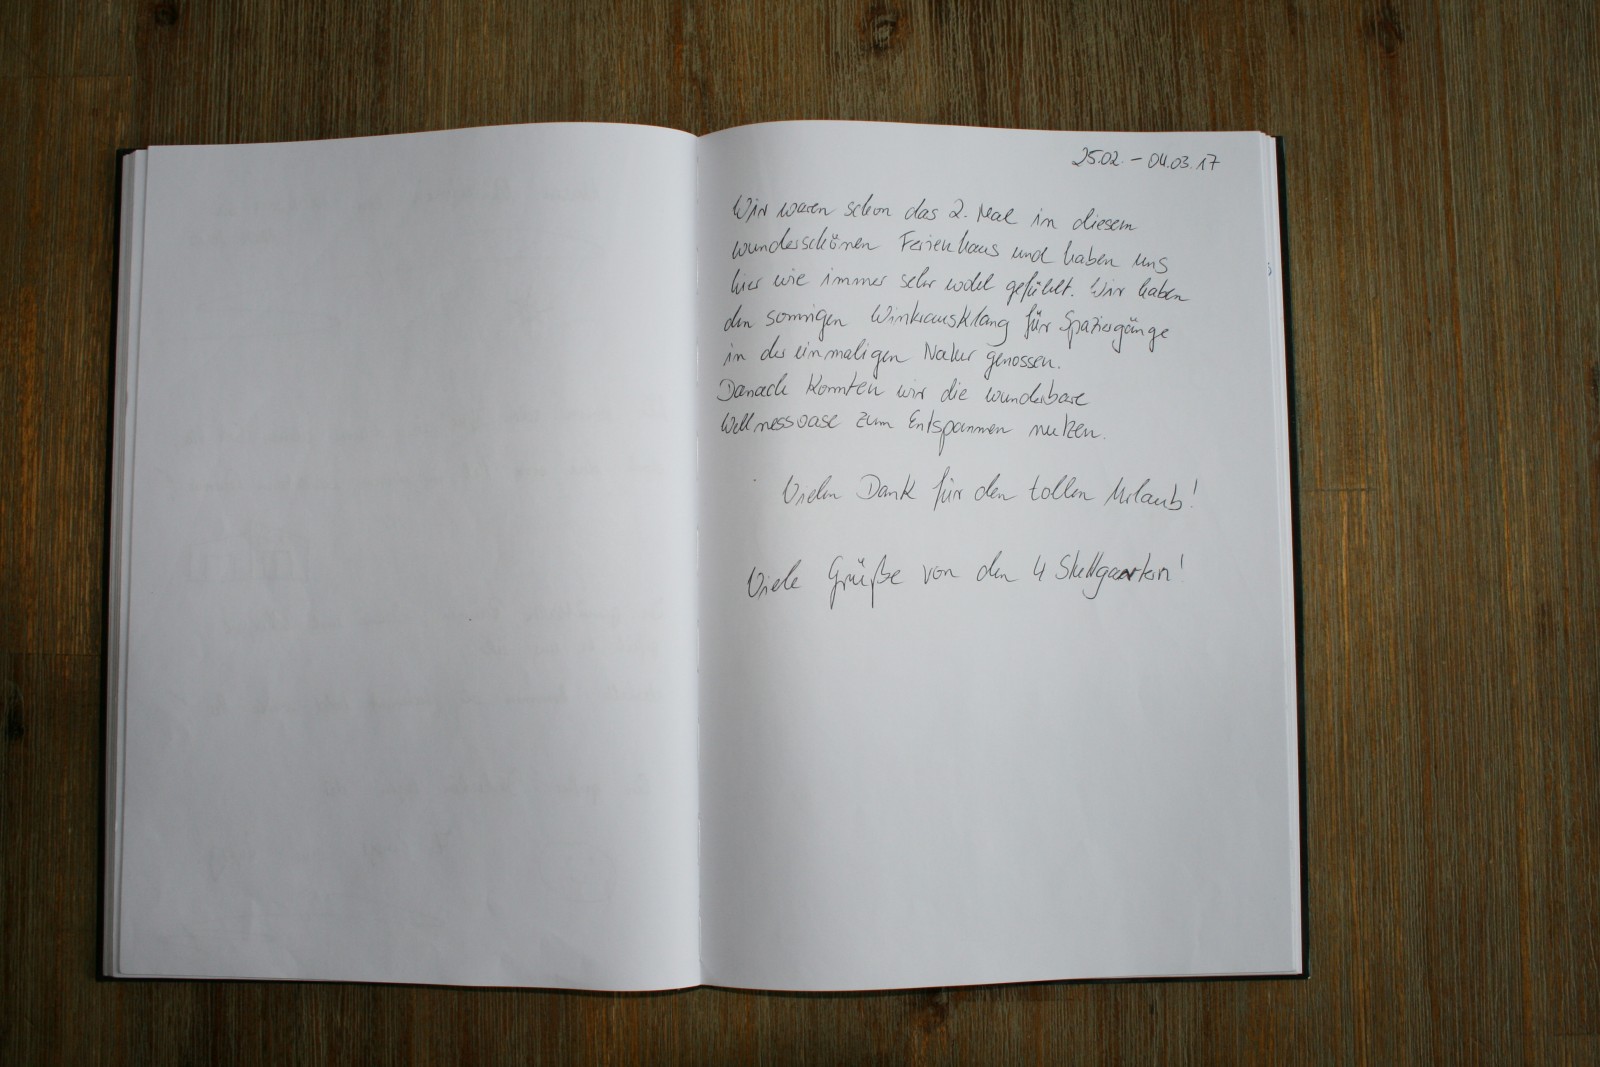 25.02. – 04.03.17
Wir waren schon das 2. Mal in diesem
wunderschönen Ferienhaus und haben uns
hier wie immer sehr wohl gefühlt. Wir haben
den sonnigen Winterausklang für Spaziergänge
in der einmaligen Natur genossen.
Danach konnten wir die wunderbare
Wellnessoase zum Entspannen nutzen.
Vielen Dank für den tollen Urlaub!
Viele Grüße von den 4 Stuttgartern!